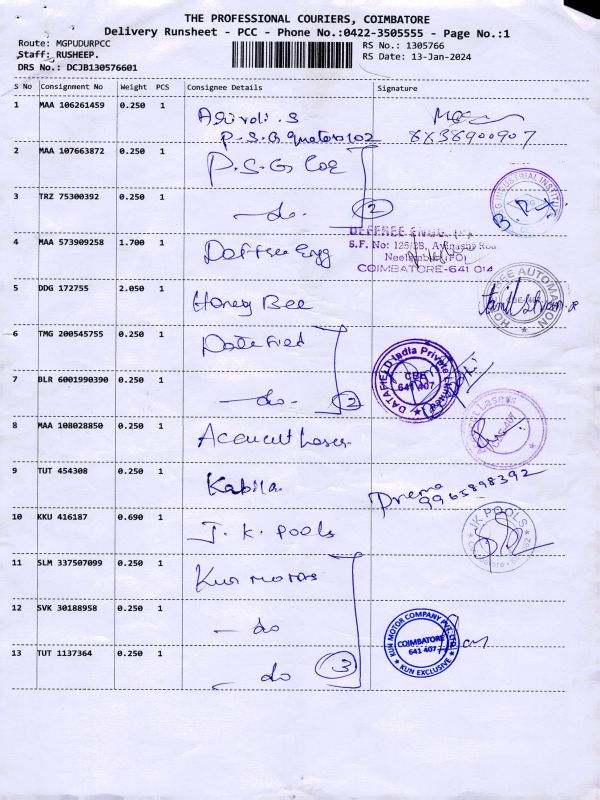 THE PROFESSIONAL COURIERS, COIMBATORE
Delivery Runsheet - PCC - Phone No.:0422-3505555 - Page No.:1
Route: MGPUDURPCC RS No.: 1305766
Staff: RUSHEEP. RS Date: 13-Jan-2024
DRS No.: DCJB130576601
S No Consignment No Weight PCS Consignee Details Signature
1 MAA 106261459 0.250 1
P.S.G quaters 102
2 MAA 107663872 0.250 1 P.S.G. CoE
3 TRZ 75300392 0.250 1 — do. 2
4 MAA 573909258 1.700 1 Daffree Engg
S.F. No: 125/2B, Avinashi Road
Neelambur (PO)
COIMBATORE-641 014
5 DDG 172755 2.050 1 Honey Bee
HONEY BEE AUTOMATION
6 TMG 200545755 0.250 1 Datafied
DATAFIELD India Private Limited
CBE
641 407
7 BLR 6001990390 0.250 1 — do. 2
8 MAA 108028850 0.250 1 Accucut Laser
Lasers
9 TUT 454308 0.250 1 Kabila Prema
9965898392
10 KKU 416187 0.690 1 J. K. Pools
JK POOLS
11 SLM 337507099 0.250 1 Kun motors
12 SVK 30188958 0.250 1 — do
KUN MOTOR COMPANY PVT. LTD.
COIMBATORE
641 407
KUN EXCLUSIVE
13 TUT 1137364 0.250 1 — do 3